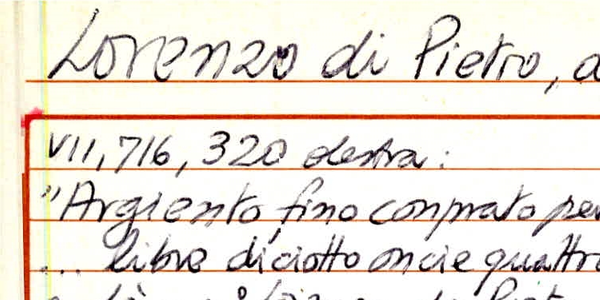 Lorenzo di Pietro, d
VII, 716, 320 destra:
"Argiento fino conprato per
... libre diciotto oncie quattro